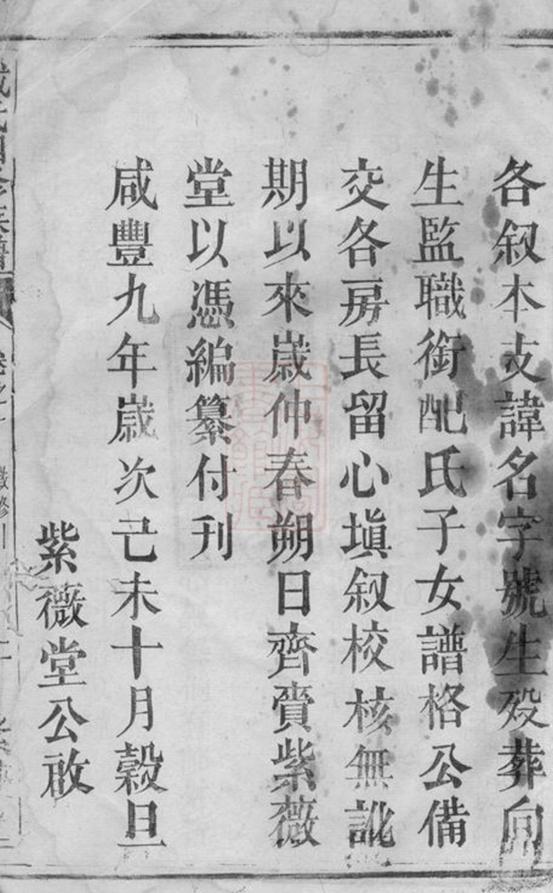 各叙本支諱名字號生殁葬向
生監職銜配氏子女譜格公備
交各房長留心塡叙校核無訛
期以來歲仲春朔日齊賫紫薇
堂以憑編纂付刊
咸豐九年歲次己未十月穀旦
紫薇堂公啟